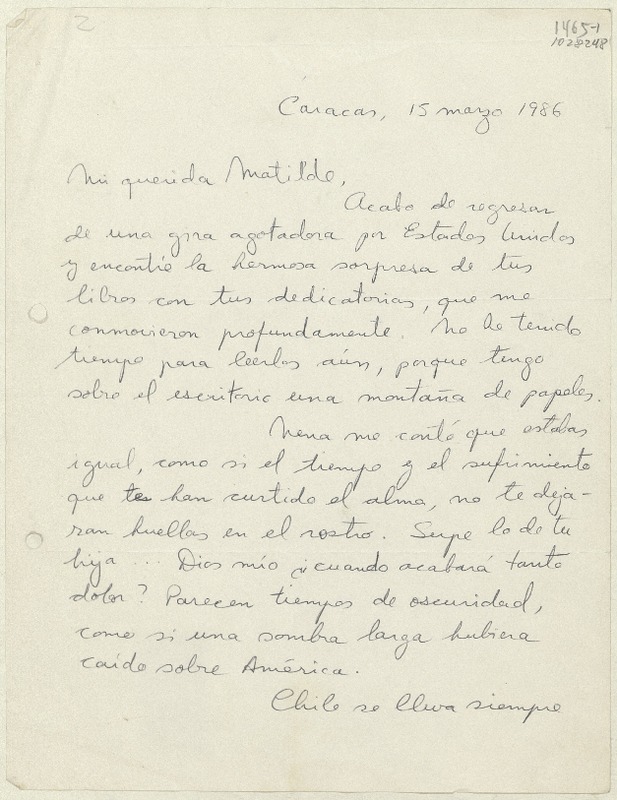 2
1465-1
1028248
Caracas, 15 marzo 1986
Mi querida Matilde,
Acabo de regresar
de una gira agotadora por Estados Unidos
y encontré la hermosa sorpresa de tus
libros con tus dedicatorias, que me
conmovieron profundamente. No he tenido
tiempo para leerlos aún, porque tengo
sobre el escritorio una montaña de papeles.
Nena me contó que estabas
igual, como si el tiempo y el sufrimiento
que te han curtido el alma, no te deja-
ran huellas en el rostro. Supe lo de tu
hija ... Dios mío ¿cuando acabará tanto
dolor? Parecen tiempos de oscuridad,
como si una sombra larga hubiera
caído sobre América.
Chile se lleva siempre